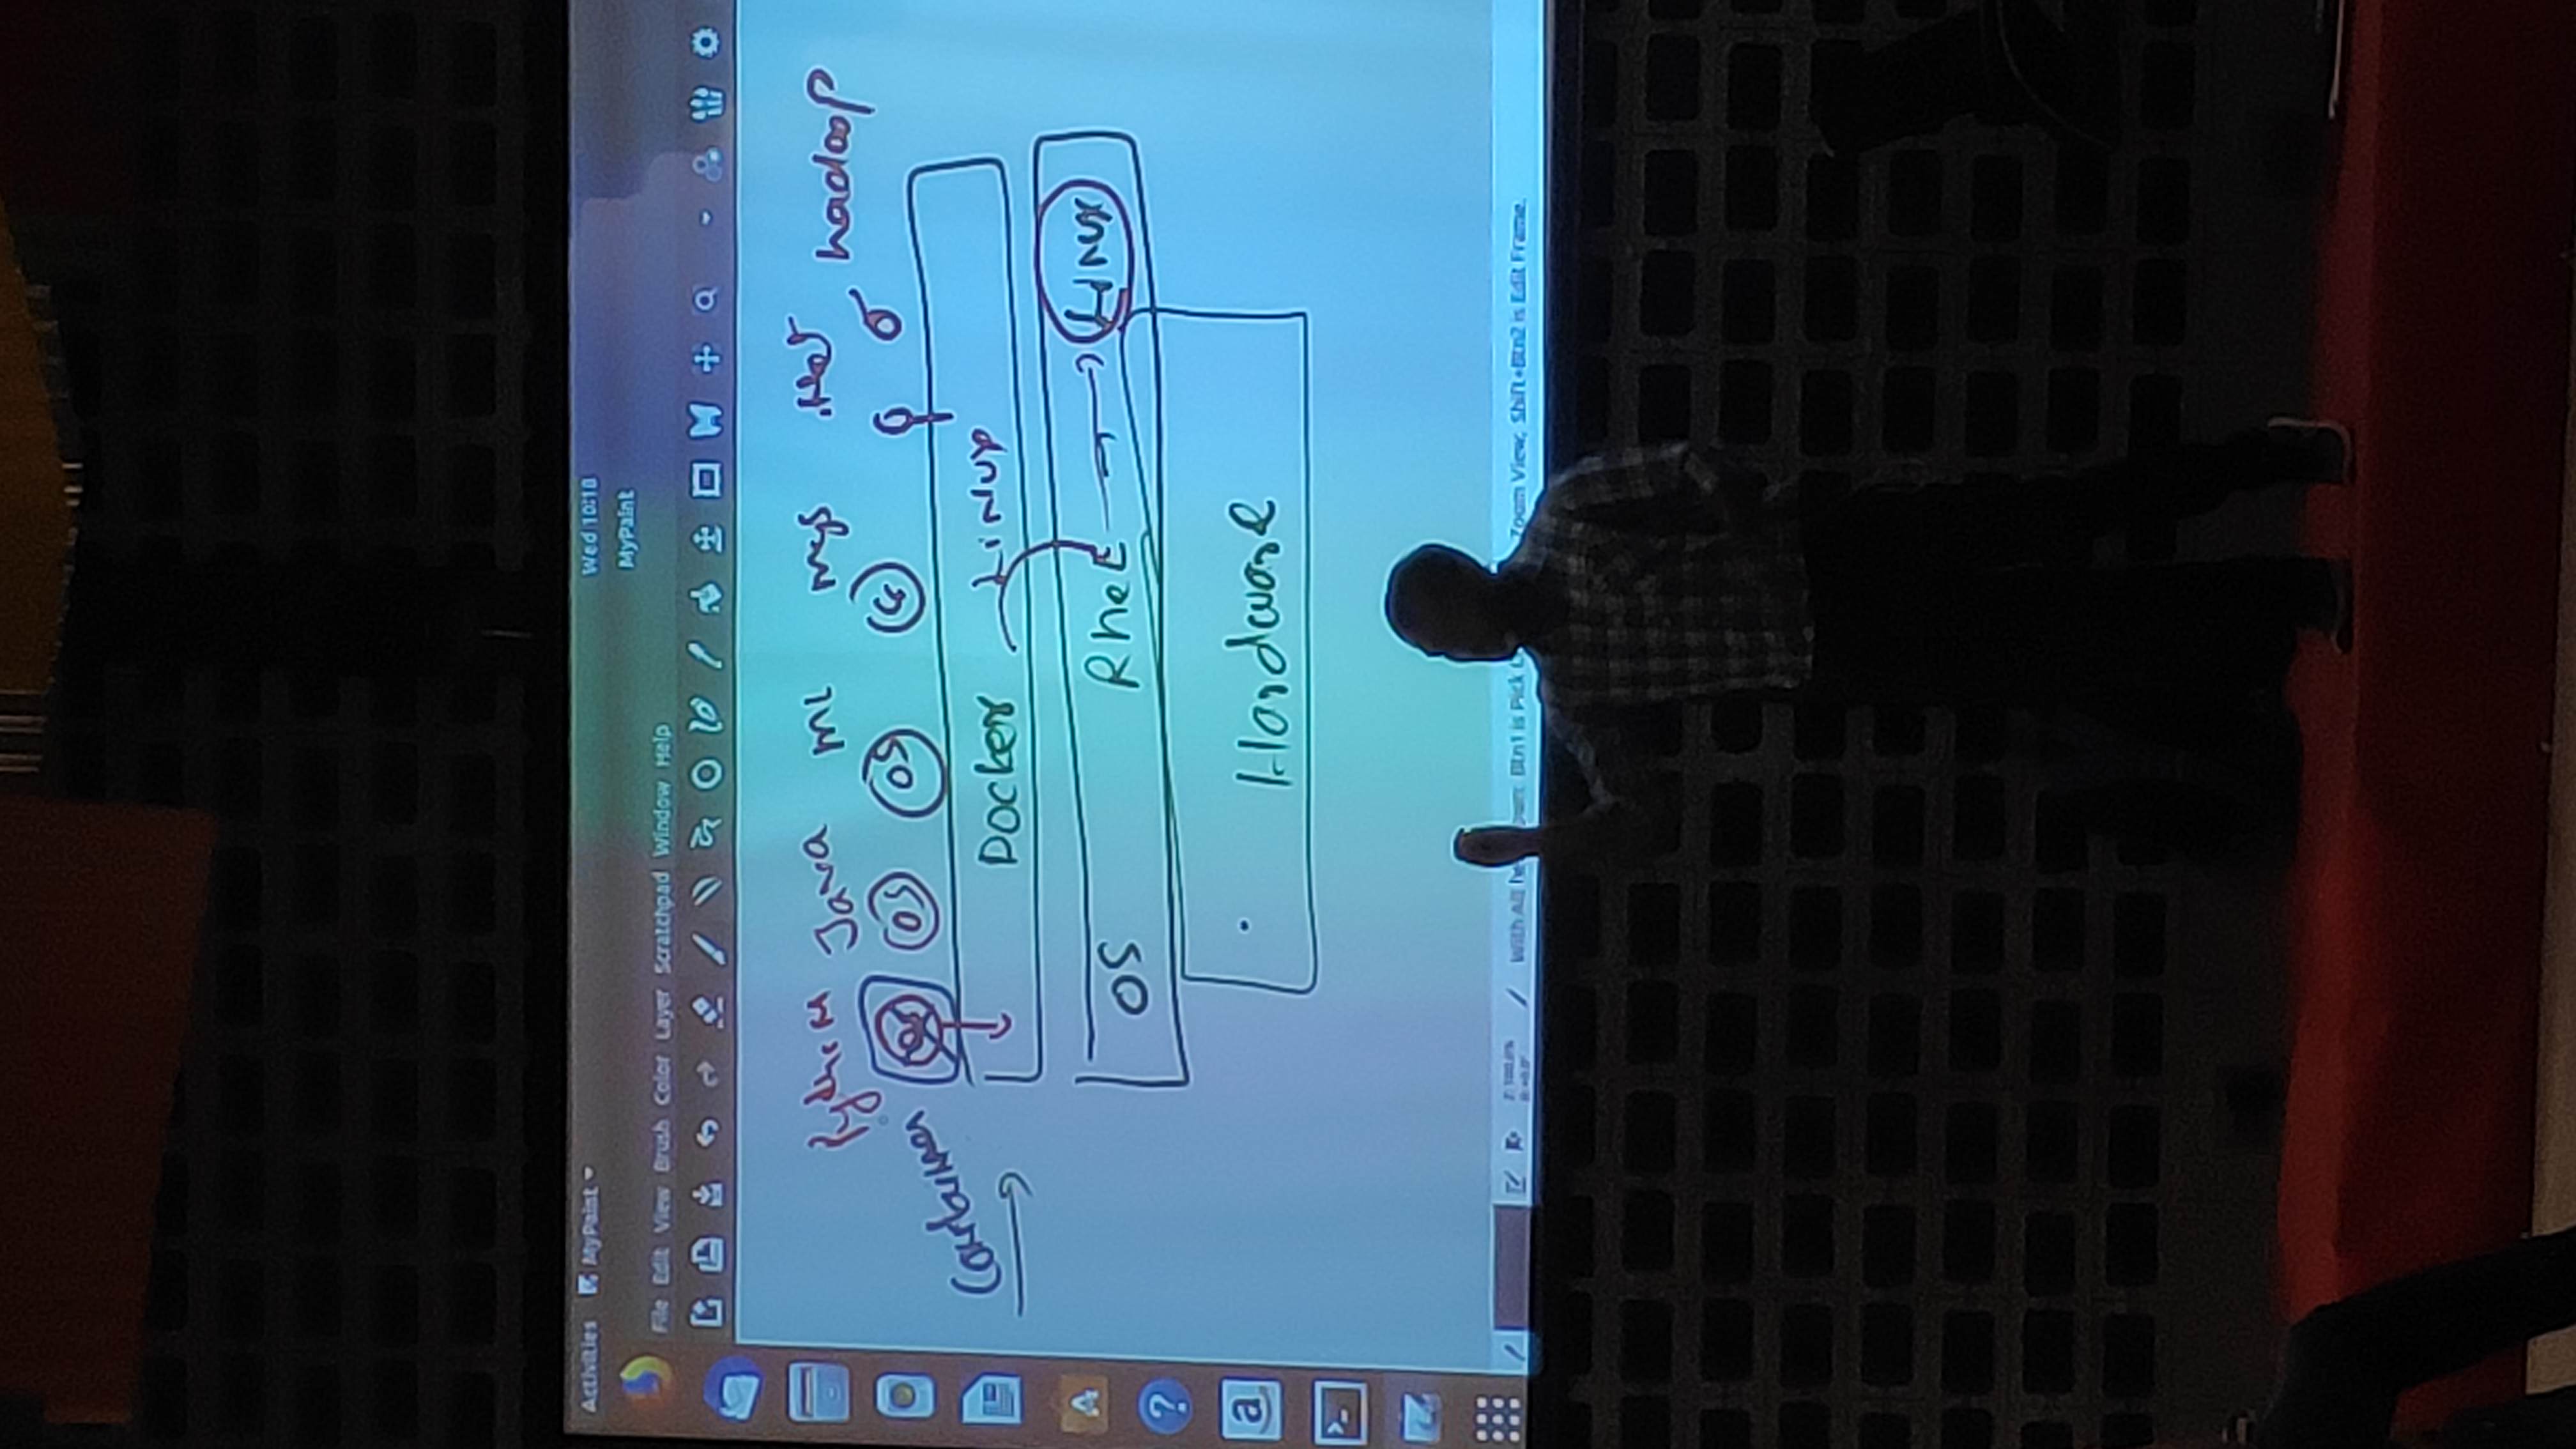 Activities MyPaint Wed 10:18
MyPaint
File Edit View Brush Color Layer Scratchpad Window Help
Python Java ML mys .Net hadoop
Container OS OS OS
Docker Linux
OS Rhel Linux
Hardware
With Alt Btn1 is Pick Zoom View, Shift+Btn2 is Edit Frame.
A
?
a
>_